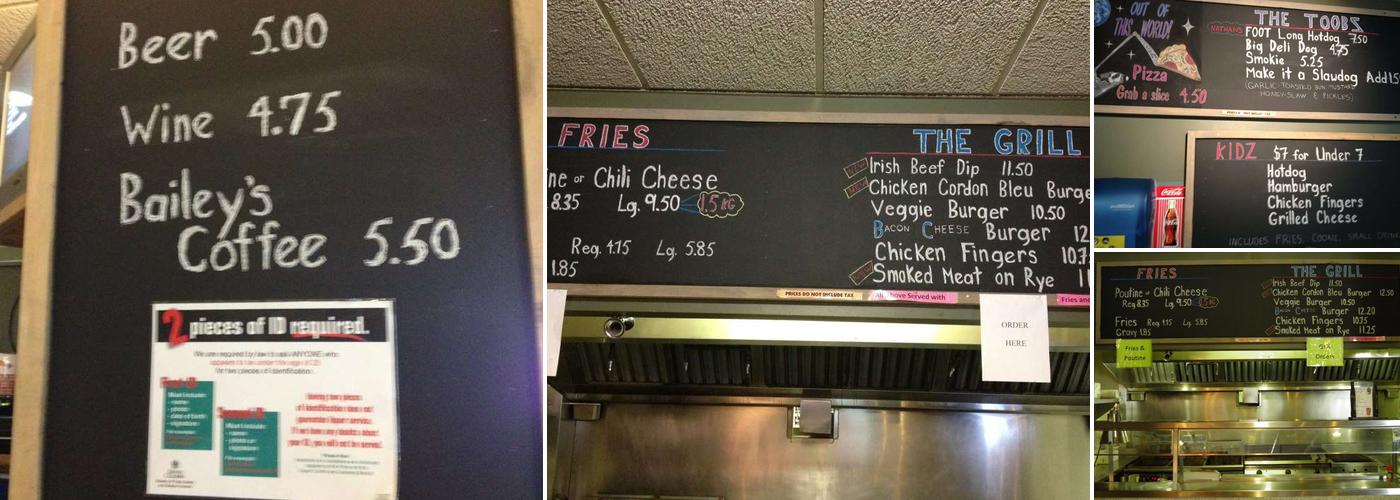 Beer 5.00
Wine 4.75
Bailey's
Coffee 5.50
2 pieces of ID required.
FRIES
ne or Chili Cheese
8.35 Lg. 9.50 1.5 KG
Reg. 4.15 Lg. 5.85
1.85
THE GRILL
NEW! Irish Beef Dip 11.50
NEW! Chicken Cordon Bleu Burge
Veggie Burger 10.50
BACON CHEESE Burger 12
Chicken Fingers 10.7
Smoked Meat on Rye 11
PRICES DO NOT INCLUDE TAX
All above Served with
Fries and
ORDER
HERE
OUT OF
THIS WORLD!
Pizza
Grab a slice 4.50
THE TOOBS
NATHANS FOOT Long Hotdog 7.50
Big Deli Dog 4.75
Smokie 5.25
Make it a Slawdog Add 1.5
(GARLIC-TOASTED BUN, MUSTARD
HONEY-SLAW & PICKLES)
KIDZ $7 for Under 7
Hotdog
Hamburger
Chicken Fingers
Grilled Cheese
INCLUDES FRIES, COOKIE, SMALL DRINK
Coca-Cola
FRIES
Poutine or Chili Cheese
Reg 8.35 Lg. 9.50 1.5 KG
Fries Reg. 4.15 Lg. 5.85
Gravy 1.85
THE GRILL
Irish Beef Dip 11.50
Chicken Cordon Bleu Burger 12.50
Veggie Burger 10.50
BACON CHEESE Burger 12.20
Chicken Fingers 10.75
Smoked Meat on Rye 11.25
Fries &
Poutine
Orders